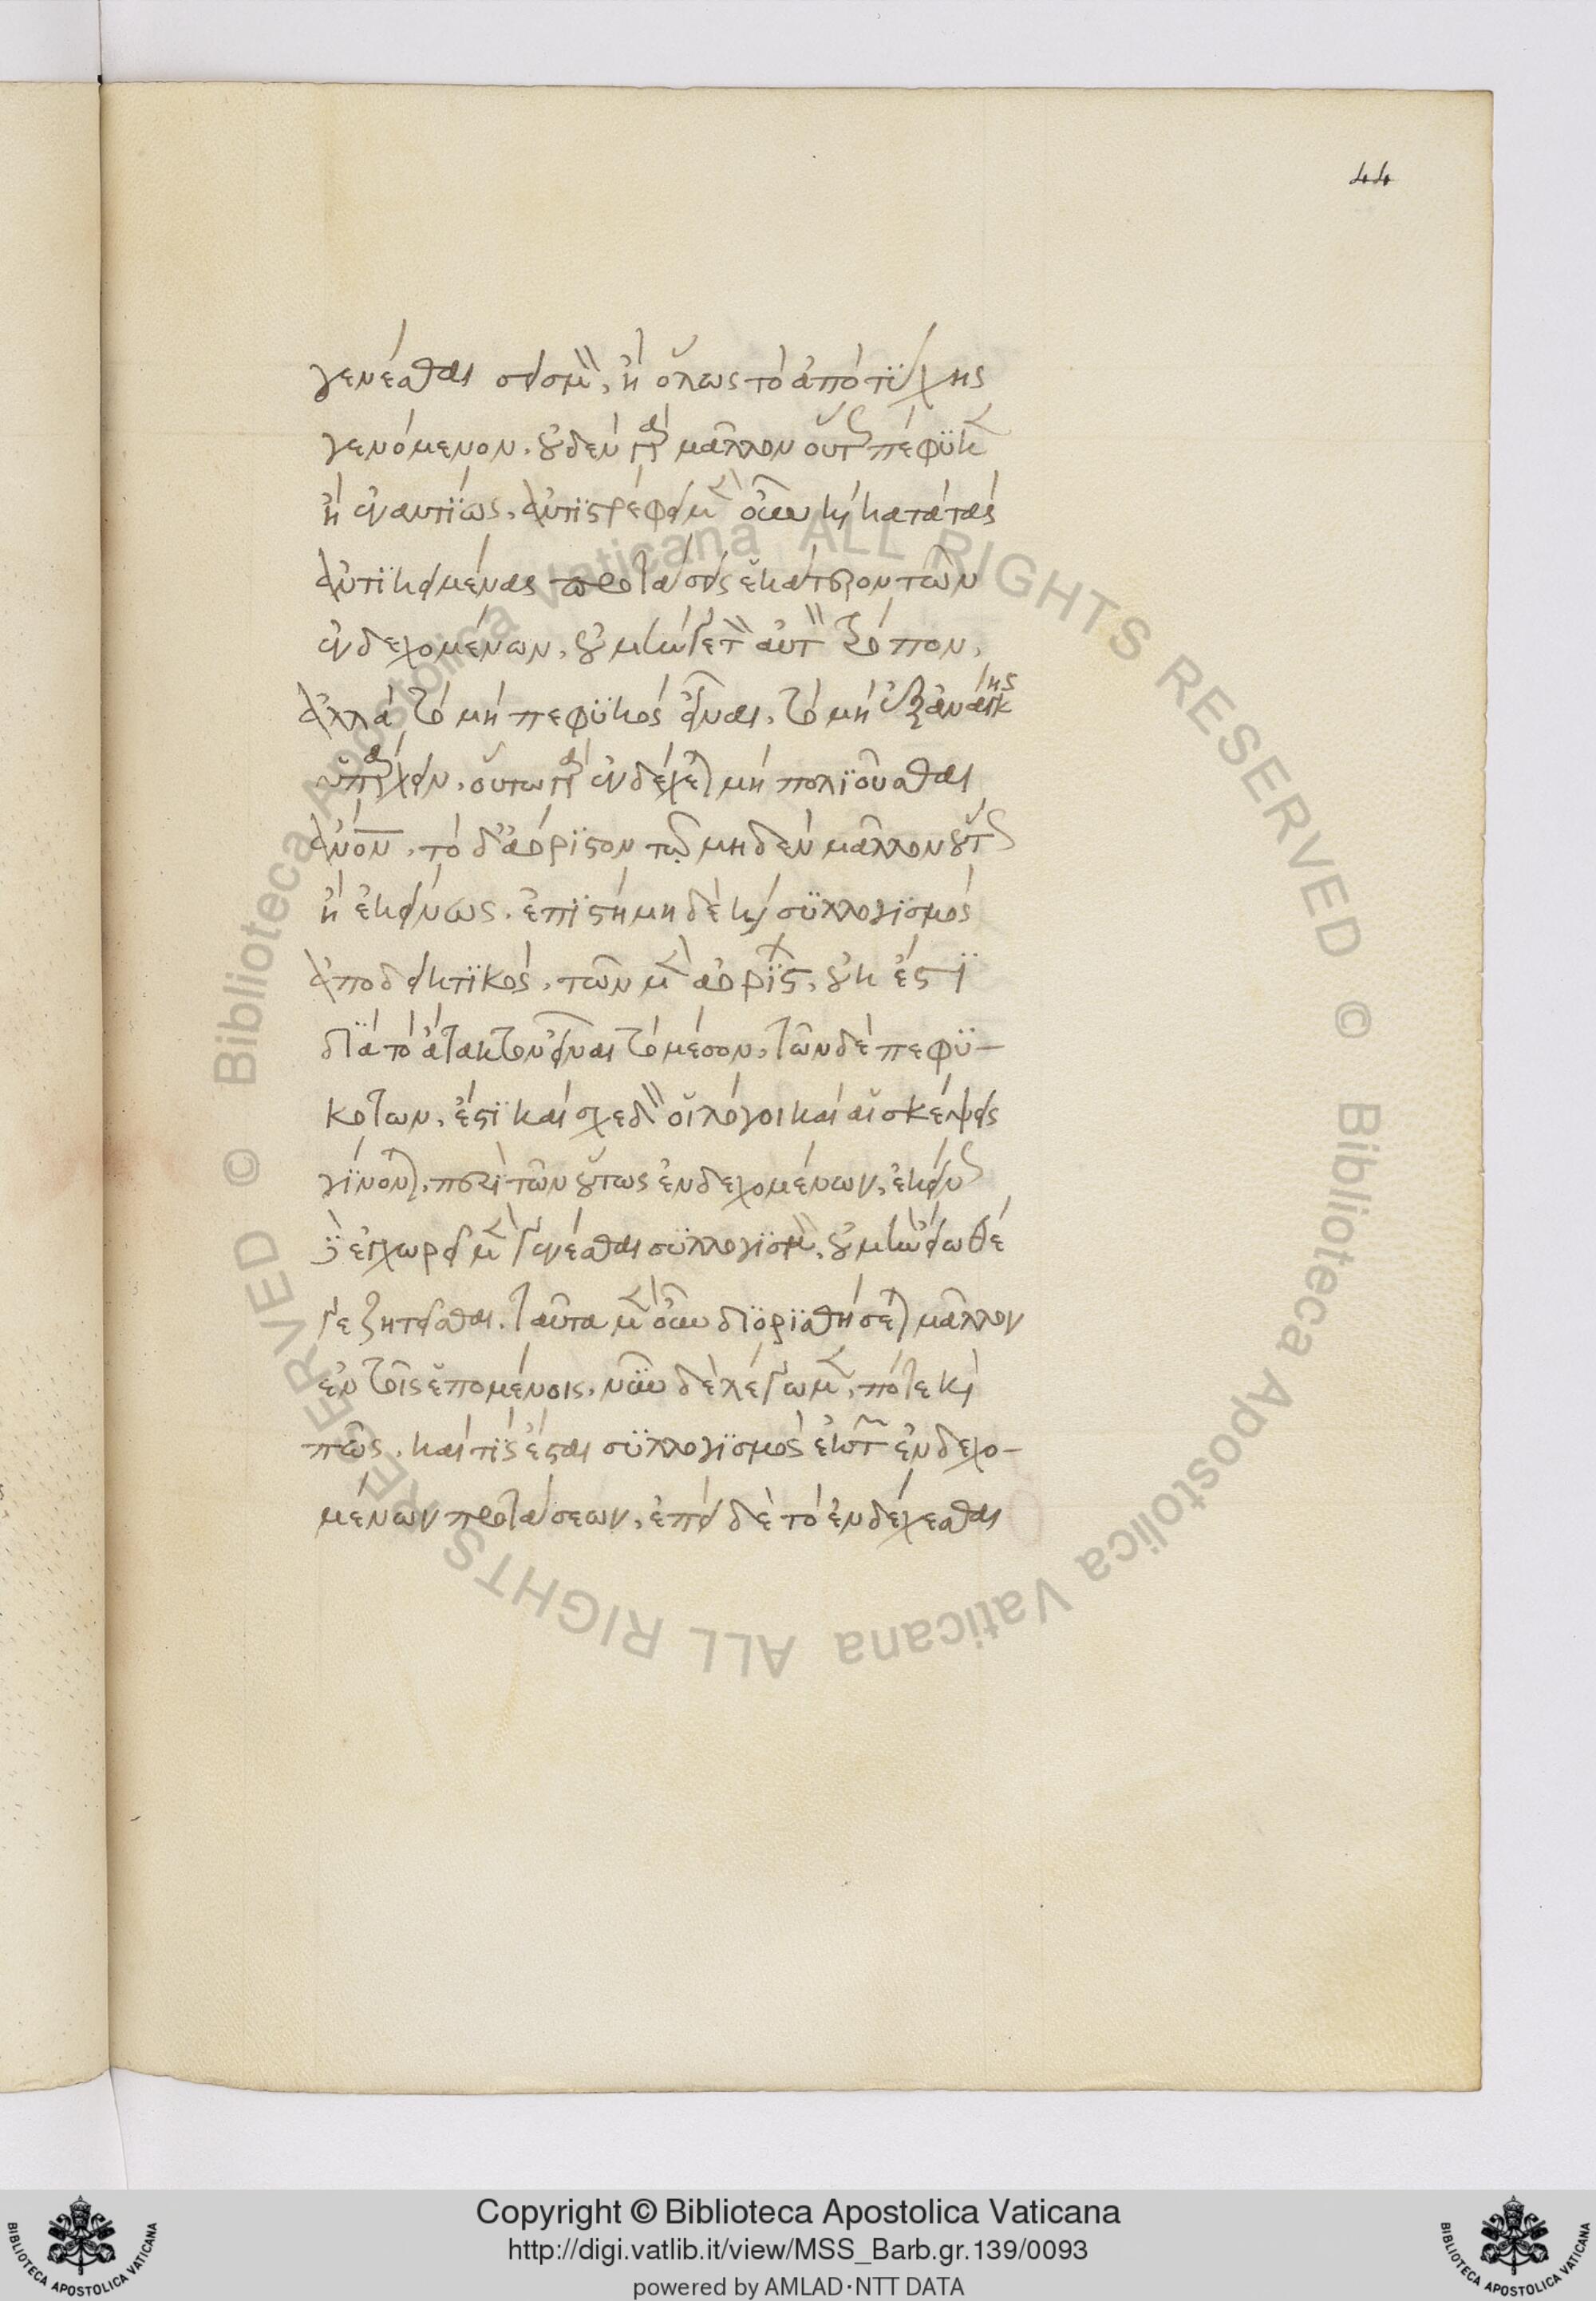 44
γενέσθαι σεισμὸν, ἢ ὅλως τὸ ἀπὸ τύχης
γενόμενον. οὐδὲν γὰρ μᾶλλον οὕτως πέφυκεν
ἢ ἐναντίως. ἀντιστρέφει μὲν οὖν καὶ κατὰ τὰς
ἀντικειμένας προτάσεις ἑκάτερον τῶν
ἐνδεχομένων, οὐ μὴν γε τὸν αὐτὸν τρόπον,
ἀλλὰ τὸ μὴ πεφυκὸς εἶναι, τὸ μὴ ἐξ ἀνάγκης
ὑπάρχειν. οὕτω γὰρ ἐνδέχεται μὴ πολιοῦσθαι
ἄνον. τὸ δ' ἀόριστον τῷ μηδὲν μᾶλλον οὕτως
ἢ ἐκείνως. ἐπιστήμη δὲ καὶ συλλογισμὸς
ἀποδεικτικὸς, τῶν μὲν ἀορίστων, οὐκ ἔστι
διὰ τὸ ἄτακτον εἶναι τὸ μέσον, τῶν δὲ πεφυ-
κότων, ἔστι καὶ σχεδὸν οἱ λόγοι καὶ αἱ σκέψεις
γίνονται, περὶ τῶν οὕτως ἐνδεχομένων, ἐκείνως
δ' ἐγχωρεῖ μὲν γενέσθαι συλλογισμὸν, οὐ μὴν εἴωθέ
γε ζητεῖσθαι. ταῦτα μὲν οὖν διορισθήσεται μᾶλλον
ἐν τοῖς ἑπομένοις. νῦν δὲ λέγωμεν, πότε καὶ
πῶς, καὶ τίς ἔσται συλλογισμὸς ἐκ τῶν ἐνδεχο-
μένων προτάσεων, ἐπεὶ δὲ τὸ ἐνδέχεσθαι
Copyright © Biblioteca Apostolica Vaticana
http://digi.vatlib.it/view/MSS_Barb.gr.139/0093
powered by AMLAD·NTT DATA